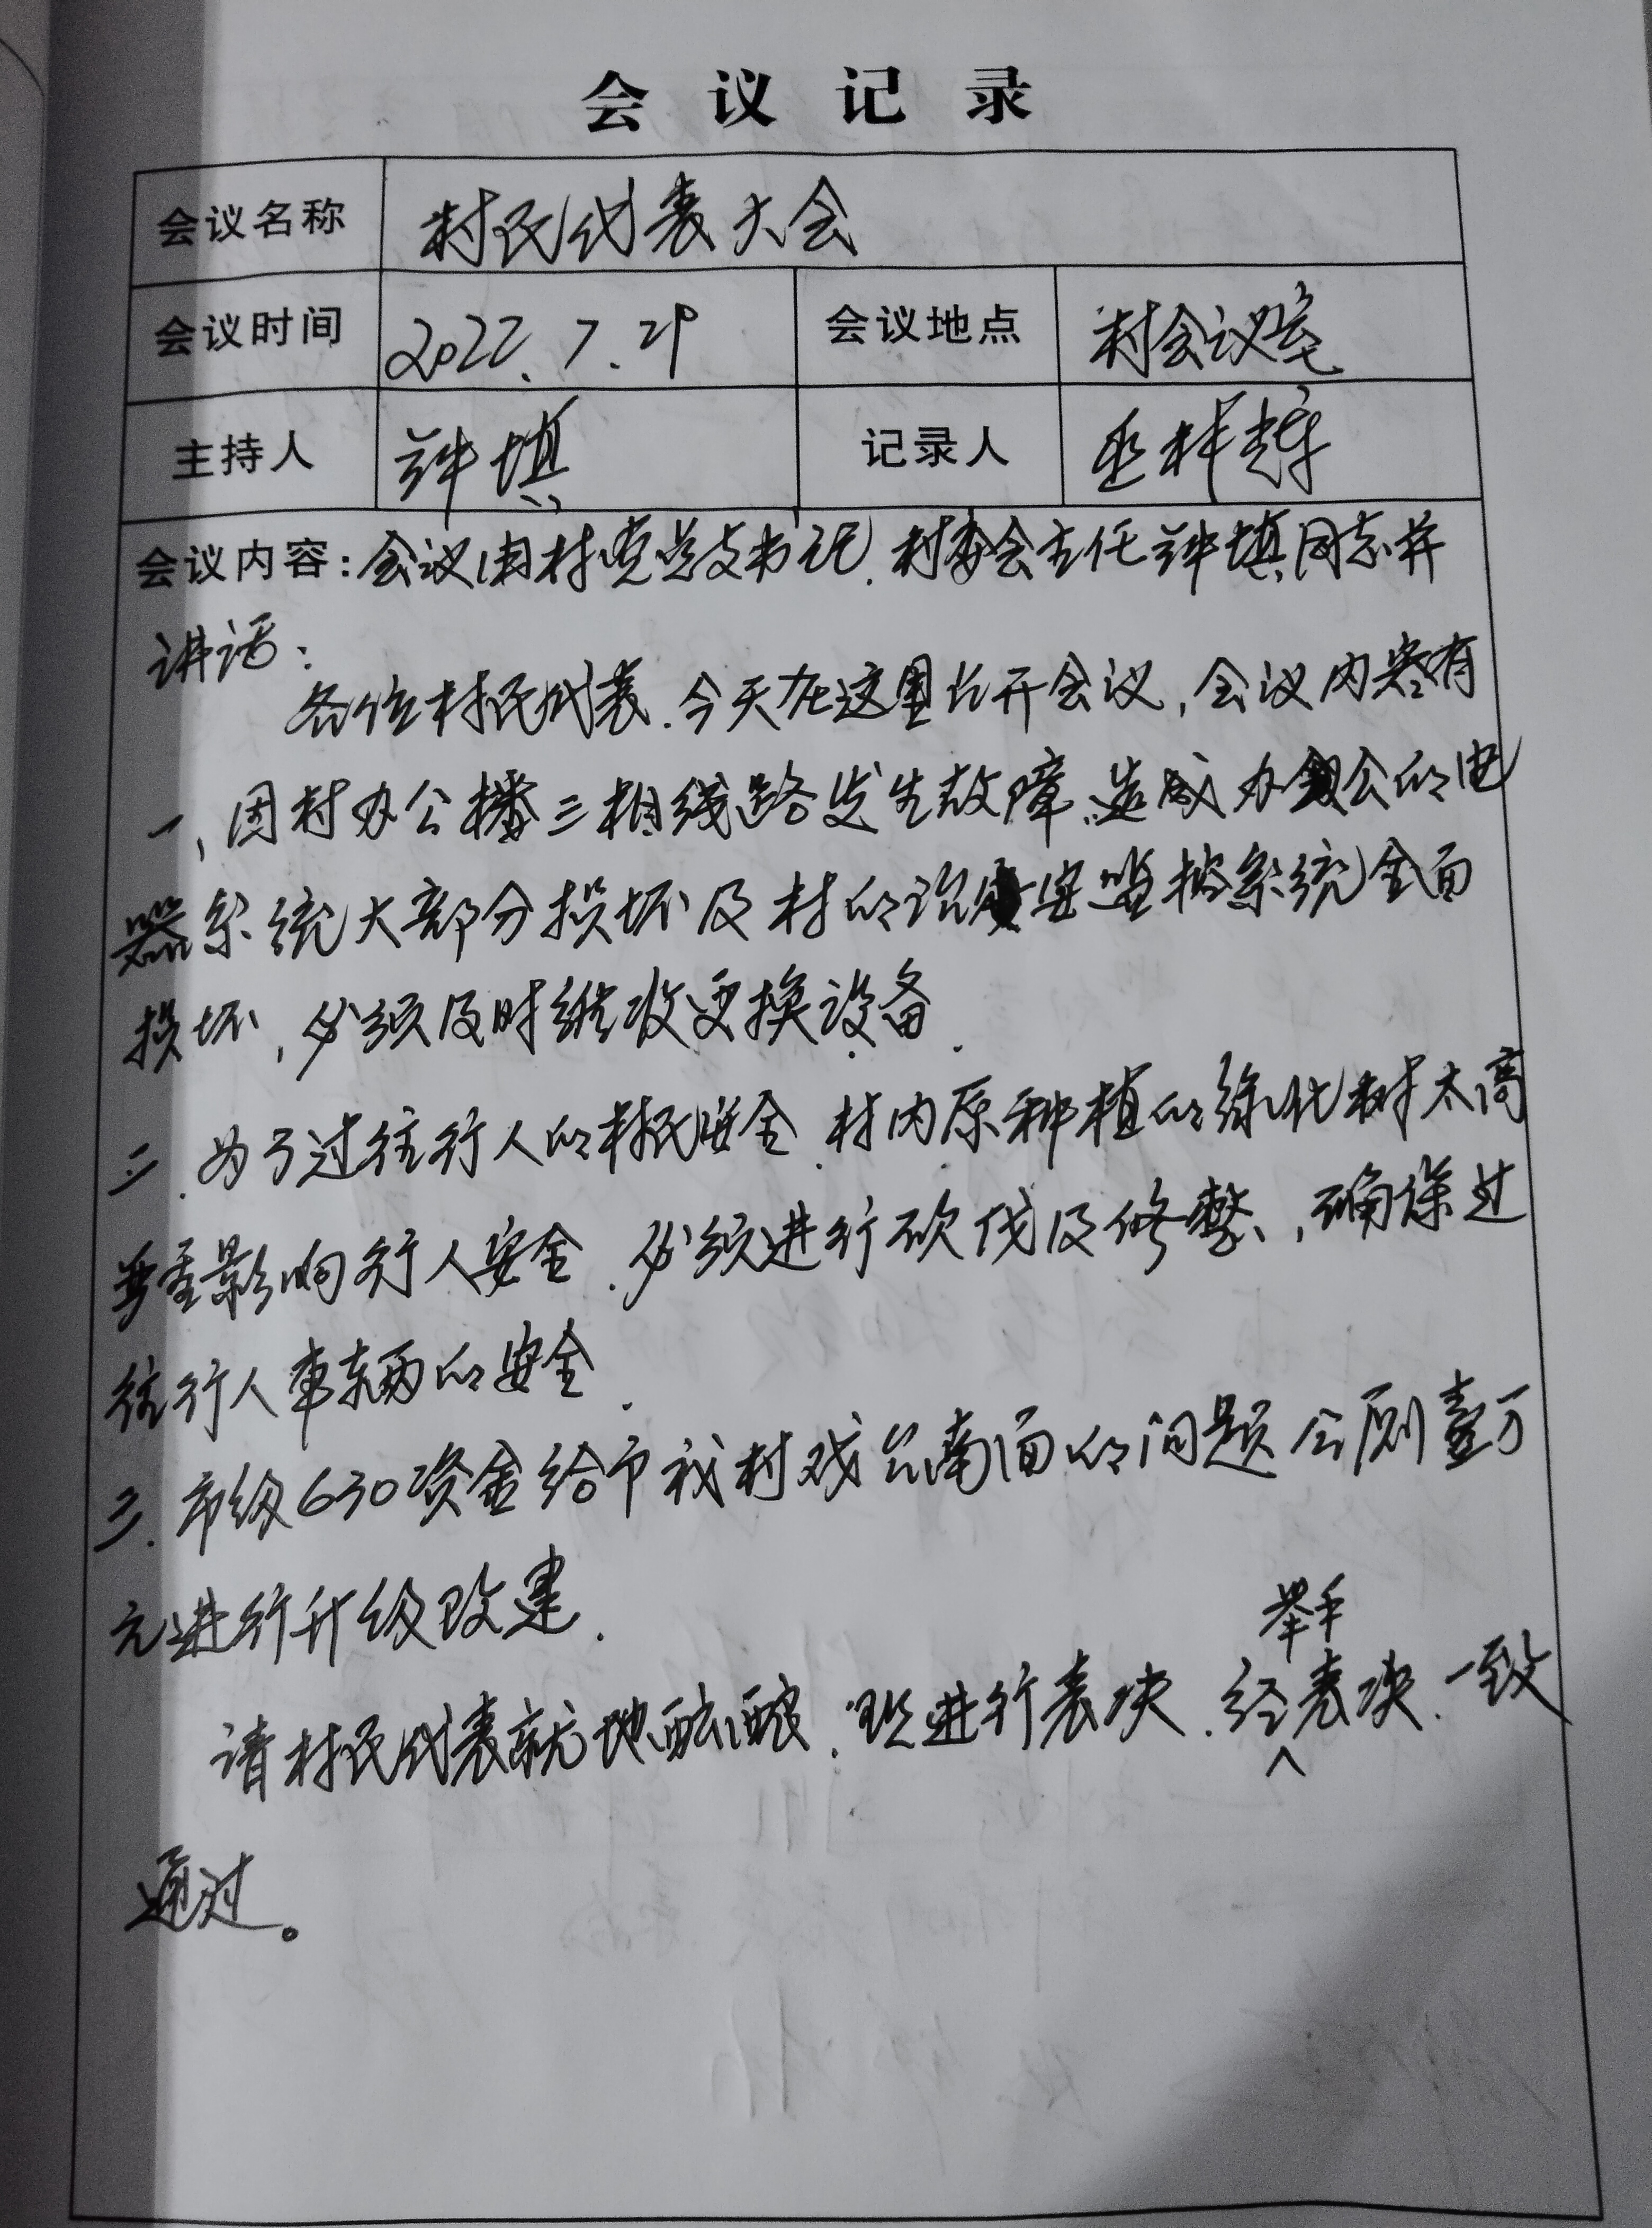 会议记录
会议名称 村民代表大会
会议时间 2022.7.29 会议地点 村会议室
主持人 记录人
会议内容:会议由村党总支书记、村委会主任 同志并
讲话:
各位村民代表、今天在这里召开会议,会议内容有
一、因村办公楼三相线路发生故障、造成办公的电
器系统大部分损坏及村的治安监控系统全面
损坏,必须及时维改更换设备.
二、为了过往行人的村民安全、村内原种植的绿化树太高
严重影响行人安全、必须进行砍伐及修整,确保过
往行人車辆的安全.
三、市级630资金给予我村戏台南面的问题 壹万
元进行升级改建.
请村民代表就地酝酿、现进行表决、经举手表决、一致
通过。